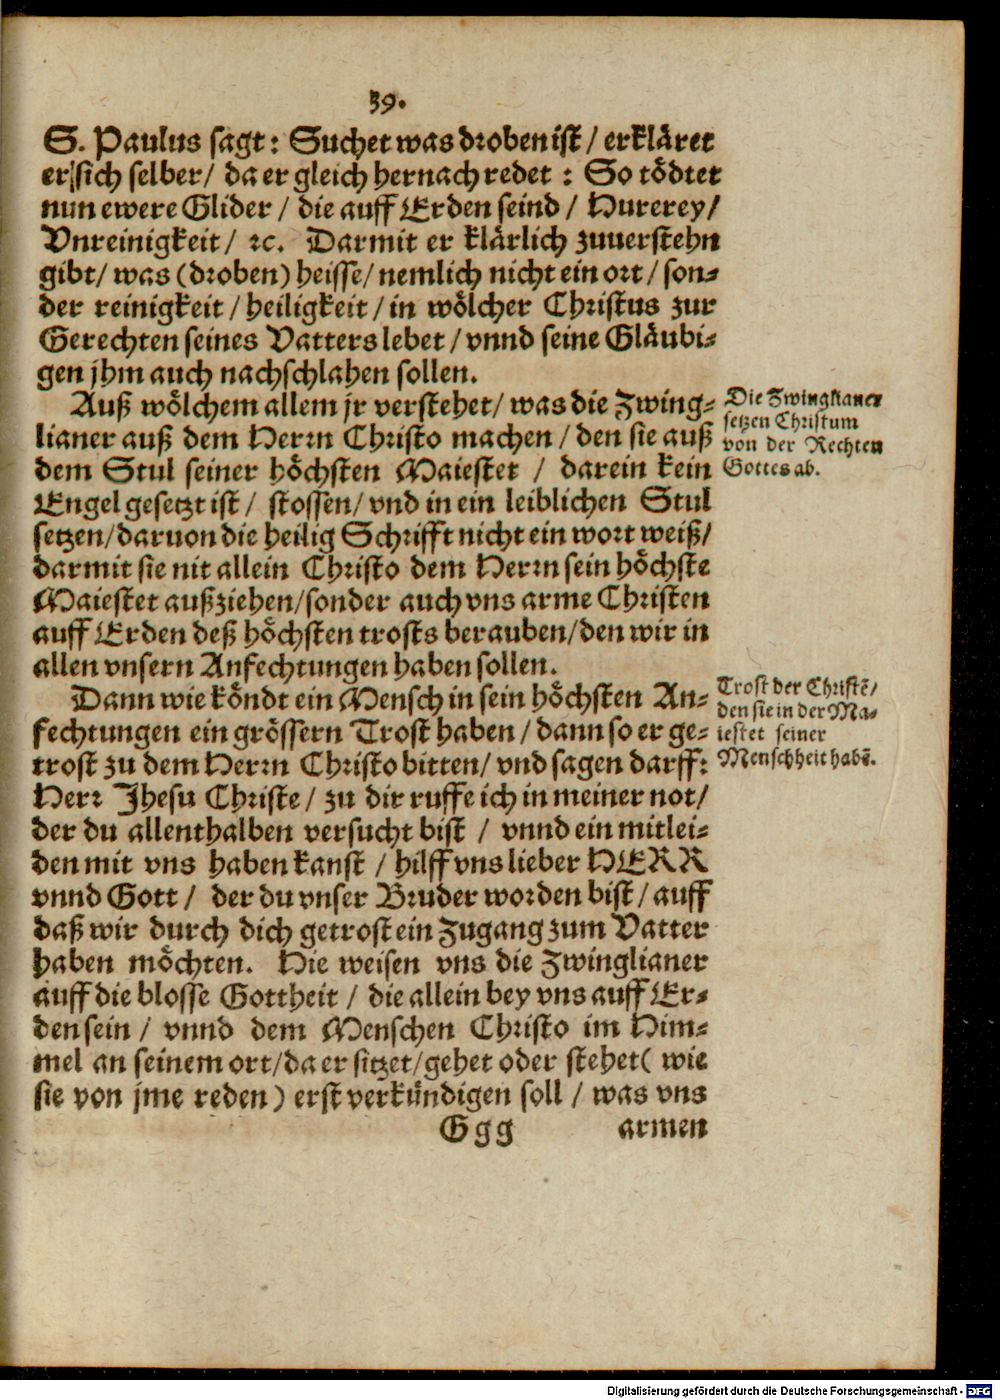 39.
S. Paulus sagt: Suchet was droben ist / erkläret
er sich selber / da er gleich hernach redet : So tödtet
nun ewere Glider / die auff Erden seind / Hurerey /
Vnreinigkeit / ꝛc. Darmit er klärlich zuuerstehn
gibt / was (droben) heisse / nemlich nicht ein ort / son-
der reinigkeit / heiligkeit / in wölcher Christus zur
Gerechten seines Vatters lebet / vnnd seine Gläubi-
gen jhm auch nachschlahen sollen.
Auß wölchem allem jr verstehet / was die Zwing-
lianer auß dem Herrn Christo machen / den sie auß
dem Stul seiner höchsten Maiestet / darein kein
Engel gesetzt ist / stossen / vnd in ein leiblichen Stul
setzen / daruon die heilig Schrifft nicht ein wort weiß /
darmit sie nit allein Christo dem Herrn sein höchste
Maiestet außziehen / sonder auch vns arme Christen
auff Erden deß höchsten trosts berauben / den wir in
allen vnsern Anfechtungen haben sollen.
Die Zwinglianer
setzen Christum
von der Rechten
Gottes ab.
Dann wie köndt ein Mensch in sein höchsten An-
fechtungen ein grössern Trost haben / dann so er ge-
trost zu dem Herrn Christo bitten / vnd sagen darff:
Herr Jhesu Christe / zu dir ruffe ich in meiner not /
der du allenthalben versucht bist / vnnd ein mitlei-
den mit vns haben kanst / hilff vns lieber HERR
vnnd Gott / der du vnser Bruder worden bist / auff
daß wir durch dich getrost ein Zugang zum Vatter
haben möchten. Hie weisen vns die Zwinglianer
auff die blosse Gottheit / die allein bey vns auff Er-
den sein / vnnd dem Menschen Christo im Him-
mel an seinem ort / da er sitzet / gehet oder stehet ( wie
sie von jme reden ) erst verkündigen soll / was vns
Trost der Christē /
den sie in der Ma-
iestet seiner
Menschheit habē.
Ggg armen
Digitalisierung gefördert durch die Deutsche Forschungsgemeinschaft - DFG